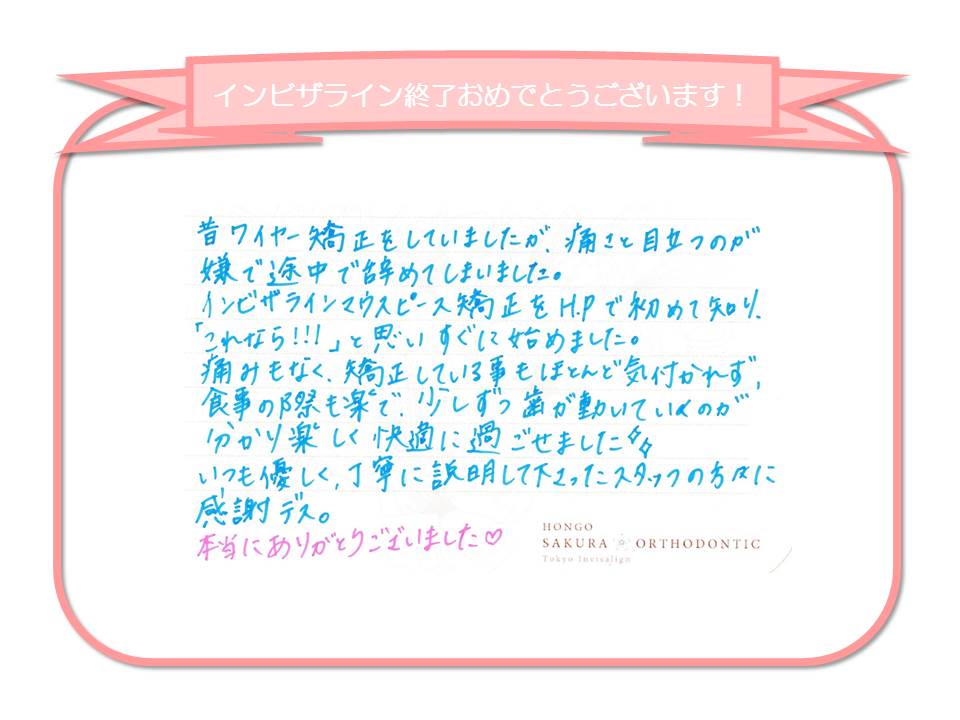 インビザライン終了おめでとうございます！
昔ワイヤー矯正をしていましたが、痛さと目立つのが
嫌で途中で辞めてしまいました。
インビザラインマウスピース矯正をH.Pで初めて知り、
「これなら!!!」と思いすぐに始めました。
痛みもなく、矯正している事もほとんど気付かれず、
食事の際も楽で、少しずつ歯が動いていくのが
分かり楽しく快適に過ごせました
いつも優しく、丁寧に説明して下さったスタッフの方々に
感謝デス。
本当にありがとうございました♡
HONGO
SAKURA ORTHODONTIC
Tokyo Invisalign